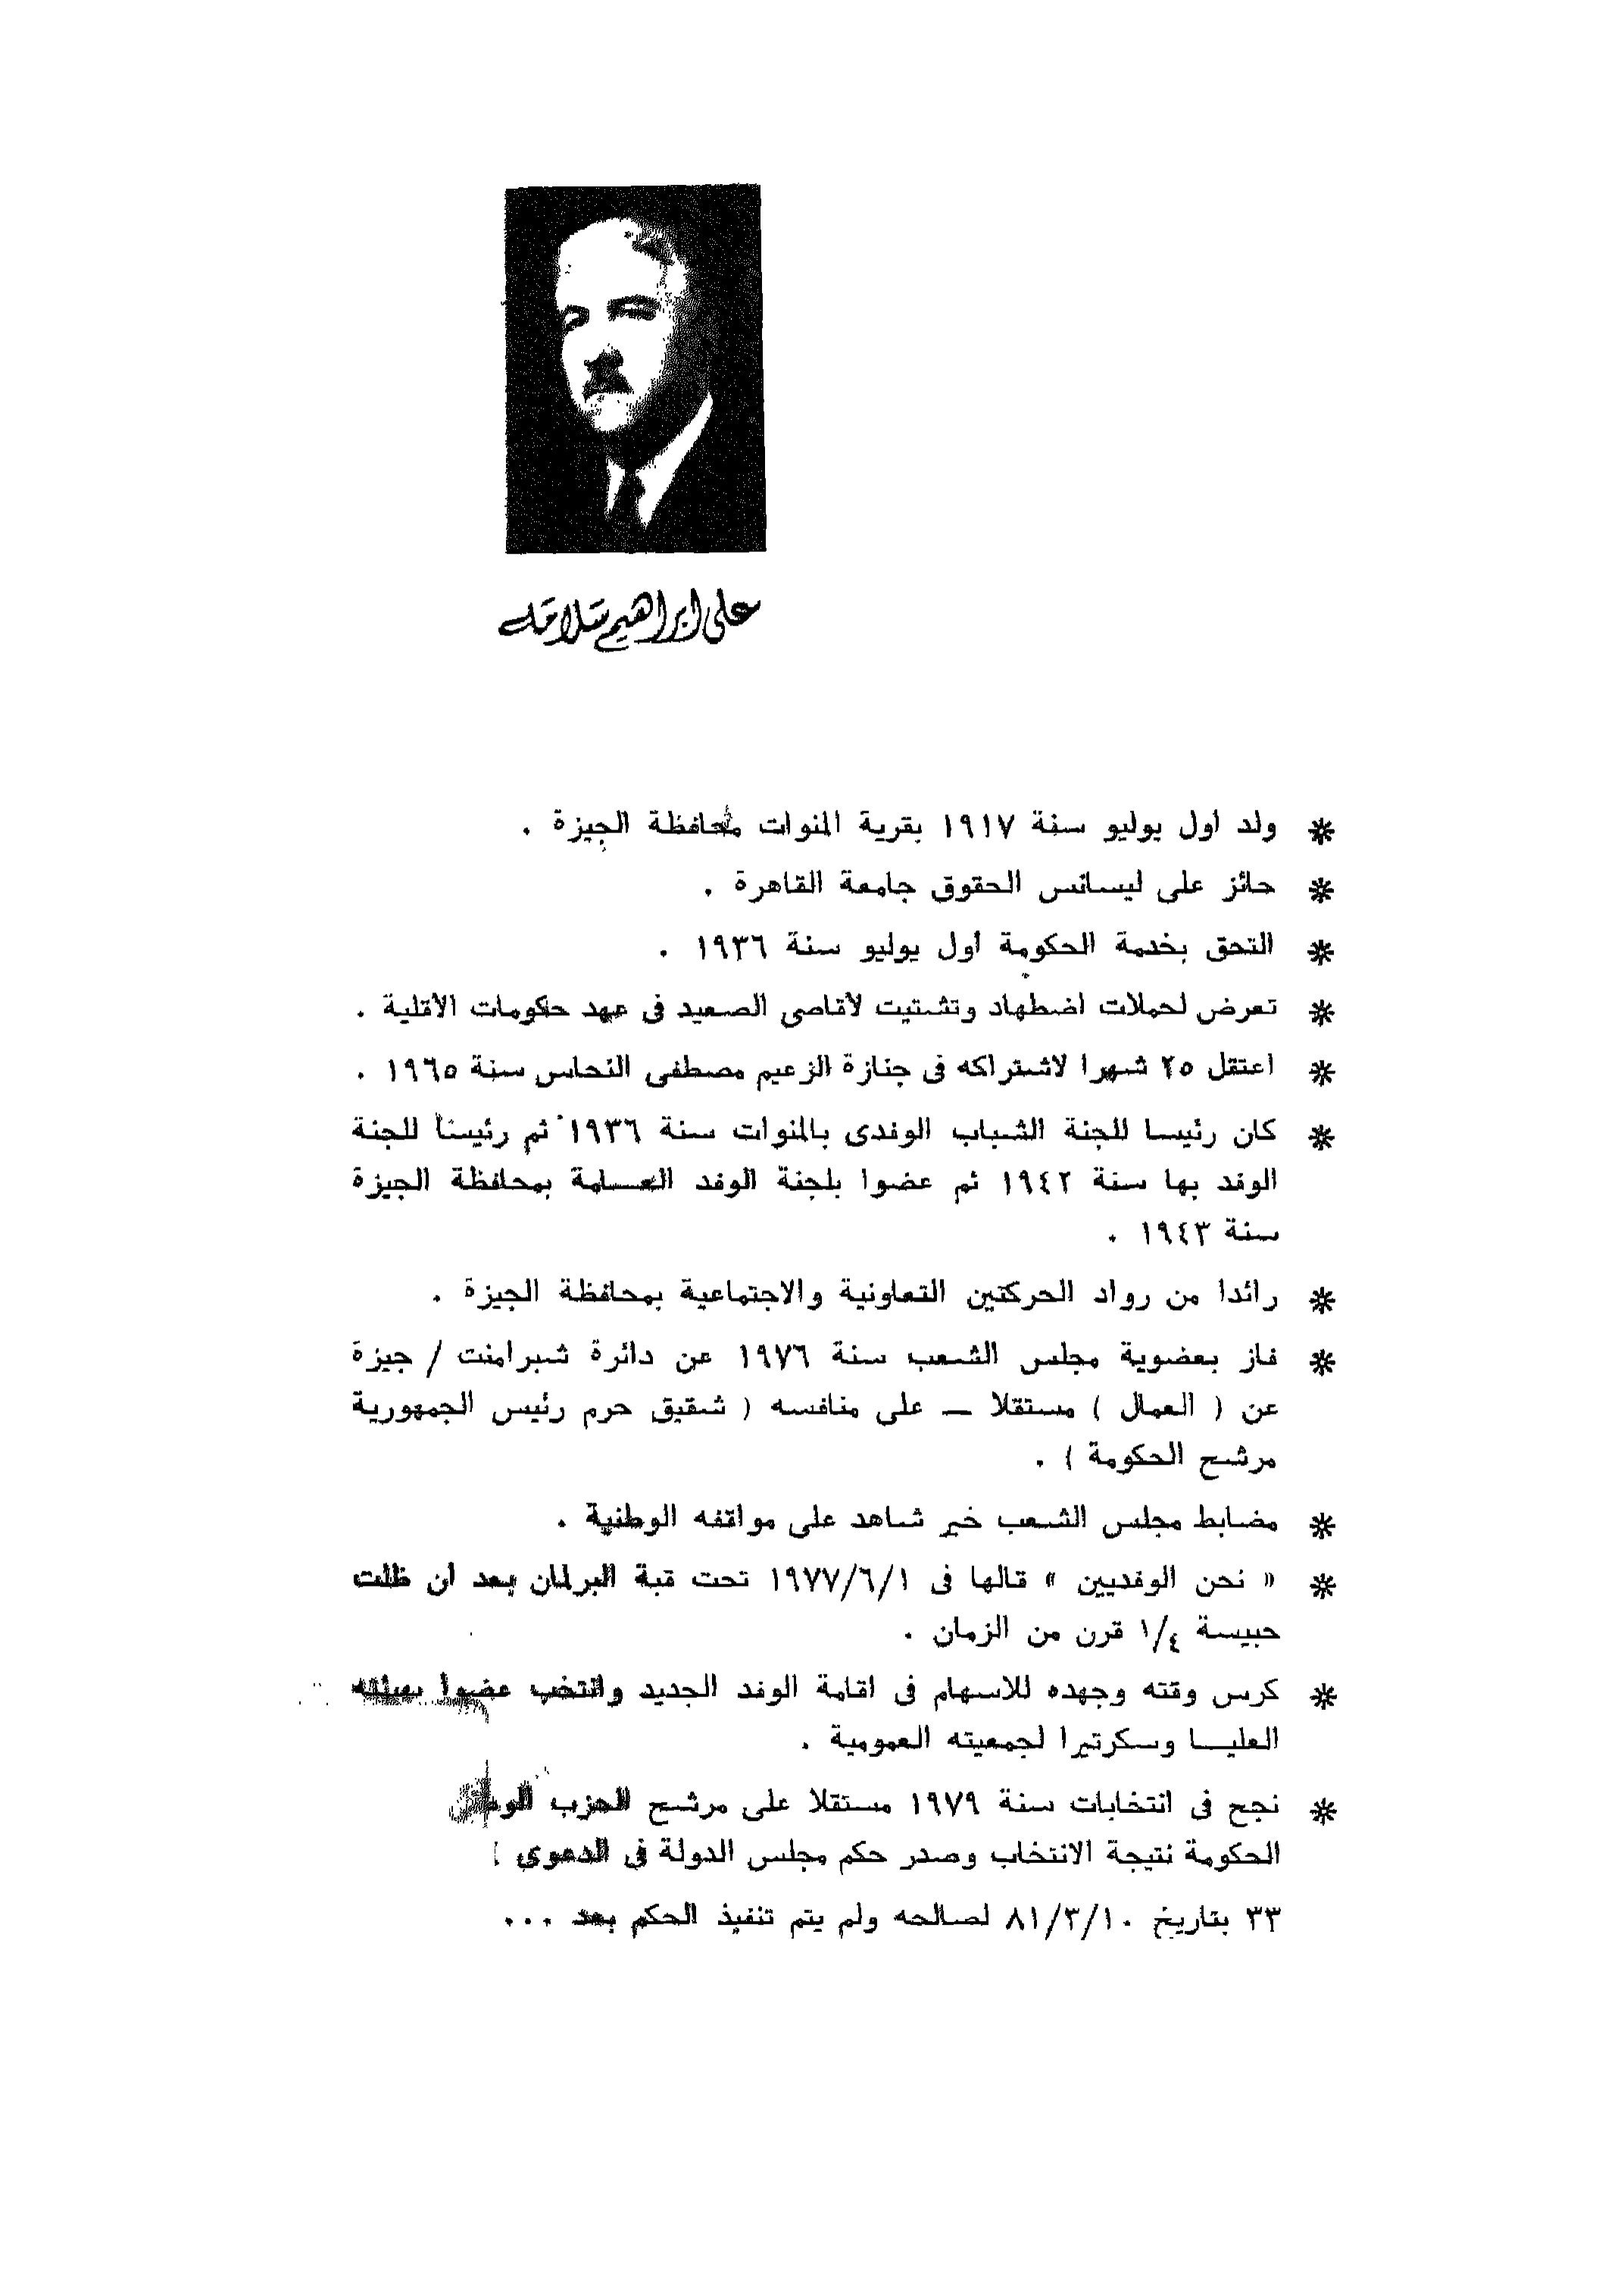 على ابراهيم سلامه
* ولد أول يوليو سنة ١٩١٧ بقرية المنوات محافظة الجيزة .
* حائز على ليسانس الحقوق جامعة القاهرة .
* التحق بخدمة الحكومة أول يوليو سنة ١٩٣٦ .
* تعرض لحملات اضطهاد وتشتيت لأقاصى الصعيد فى عهد حكومات الأقلية .
* اعتقل ٢٥ شهرا لاشتراكه فى جنازة الزعيم مصطفى النحاس سنة ١٩٦٥ .
* كان رئيسا للجنة الشباب الوفدى بالمنوات سنة ١٩٣٦ ثم رئيسا للجنة
الوفد بها سنة ١٩٤٢ ثم عضوا بلجنة الوفد العــامة بمحافظة الجيزة
سنة ١٩٤٣ .
* رائدا من رواد الحركتين التعاونية والاجتماعية بمحافظة الجيزة .
* فاز بعضوية مجلس الشعب سنة ١٩٧٦ عن دائرة شبرامنت / جيزة
عن ( العمال ) مستقلا — على منافسه ( شقيق حرم رئيس الجمهورية
مرشح الحكومة ) .
* مضابط مجلس الشعب خير شاهد على مواقفه الوطنية .
* « نحن الوفديين » قالها فى ١٩٧٧/٦/١ تحت قبة البرلمان بعد ان ظلت
حبيسة ١/٤ قرن من الزمان .
* كرس وقته وجهده للاسهام فى اقامة الوفد الجديد وانتخب عضوا بهيئته
العليــا وسكرتيرا لجمعيته العمومية .
* نجح فى انتخابات سنة ١٩٧٩ مستقلا على مرشح الحزب
الحكومة نتيجة الانتخاب وصدر حكم مجلس الدولة فى الدعوى
٣٣ بتاريخ ٨١/٣/١٠ لصالحه ولم يتم تنفيذ الحكم بعد ...